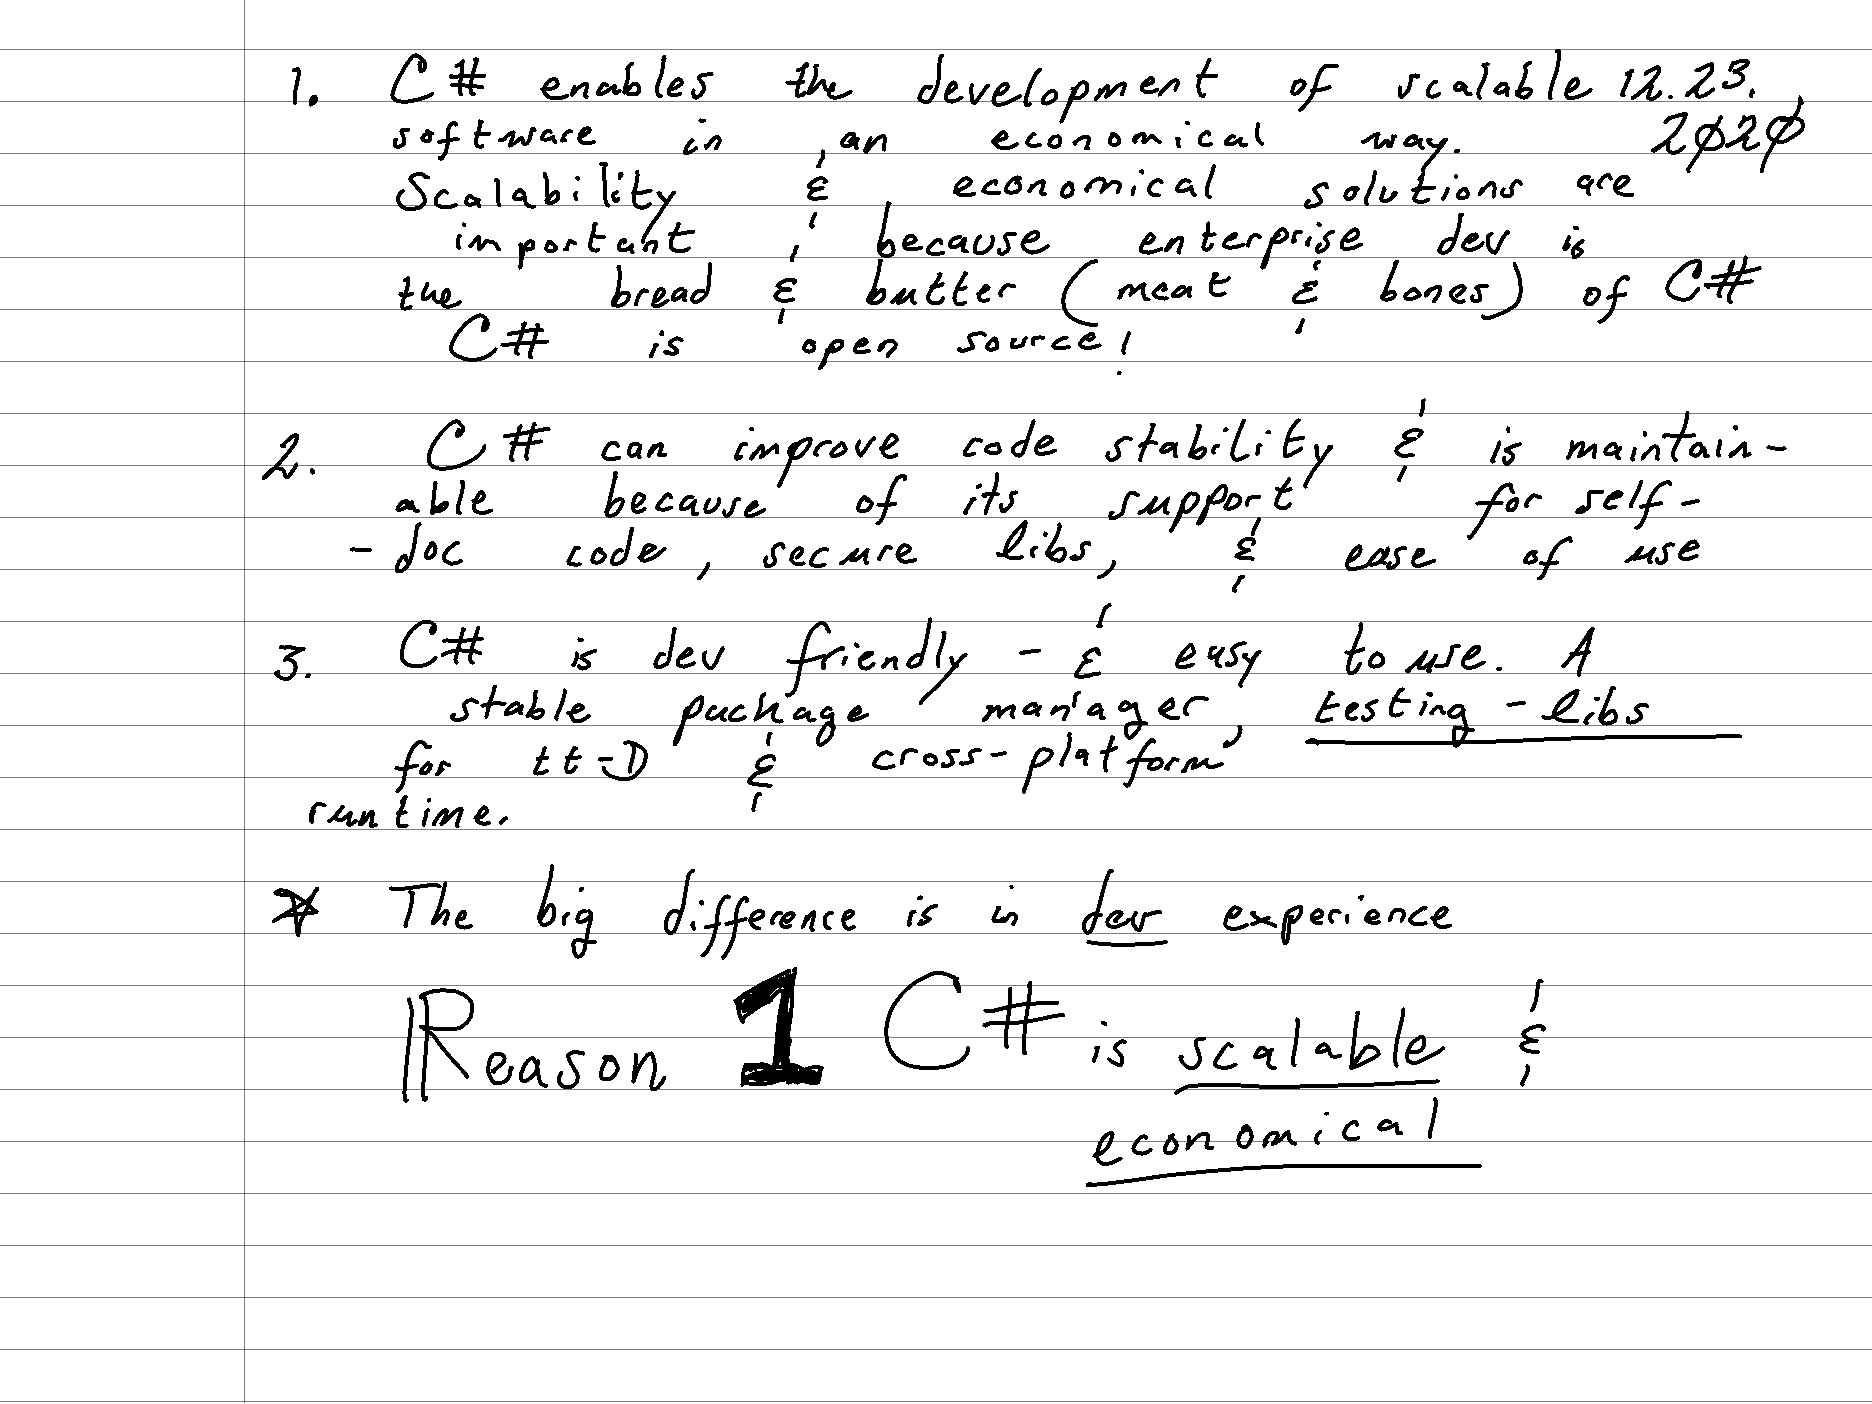 1. C# enables the development of scalable 12.23.
software in an economical way. 2020
Scalability & economical solutions are
important because enterprise dev is
the bread & butter (meat & bones) of C#
C# is open source!
2. C# can improve code stability & is maintain-
able because of its support for self-
-doc code, secure libs, & ease of use
3. C# is dev friendly - & easy to use. A
stable package manager, testing-libs
for tt-D & cross-platform
runtime.
* The big difference is in dev experience
Reason 1 C# is scalable &
economical